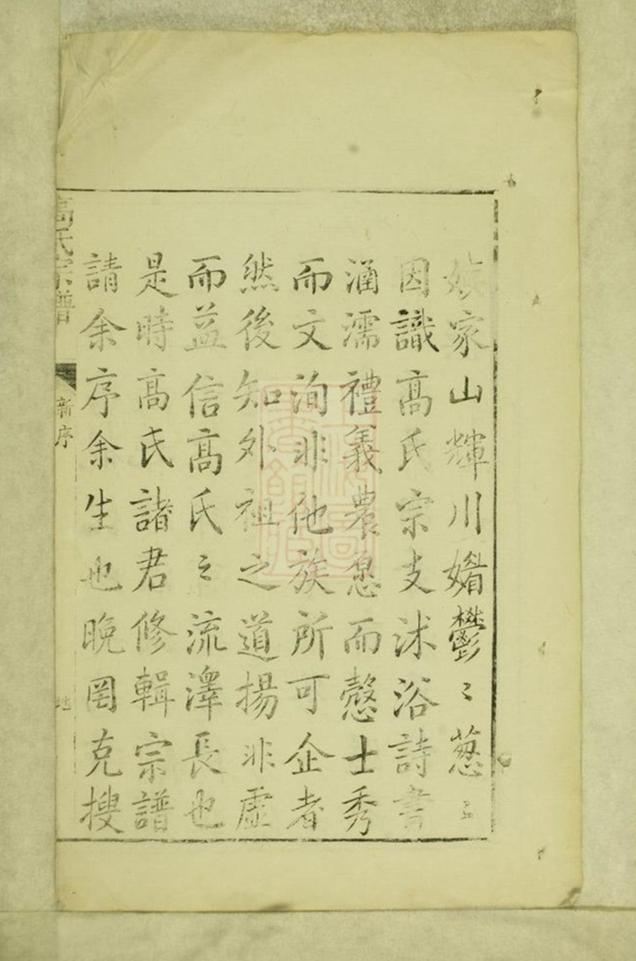 族家山輝川媚鬱〻葱〻
因識髙氏宗支沐浴詩書
涵濡禮義農慤而愨士秀
而文洵非他族所可企者
然後知外祖之道揚非虛
而益信髙氏〻流澤長也
是時髙氏諸君修輯宗譜
請余序余生也晚罔克搜
髙氏宗譜
新序